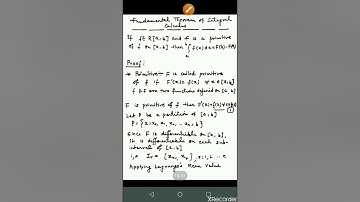 Fundamental Theorem of Integral
Calculus
If f∈ R[a,b] and F is a primitive
of f on [a,b] then ∫ₐᵇ f(x)dx = F(b)-F(a)
Proof:
Primitive - F is called primitive
of f if F'(x) = f(x) ∀ x ∈ [a,b]
f & F are two functions defined on [a,b]
F is primitive of f then F'(x) = f(x) ∀ x∈[a,b] ①
Let P be a partition of [a,b]
P = {a = x₀, x₁, x₂, ... xₙ = b}
Since F is differentiable on [a,b],
It is differentiable on each sub-
interval of [a,b]
i.e Iᵣ = [xᵣ₋₁, xᵣ], r = 1,2...n
Applying Lagrange's Mean Value
XRecorder